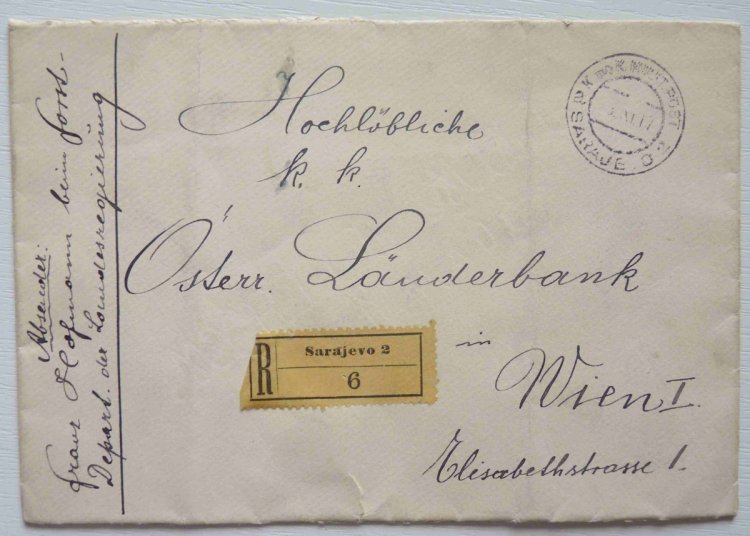 Absender:
Franz Hofmann beim Forst-
Depart. der Landesregierung
Hochlöbliche
k. k.
Österr. Länderbank
in
Wien I.
Elisabethstrasse 1.
R
Sarajevo 2
6
K. UND K. MILIT. POST
SARAJEVO 2